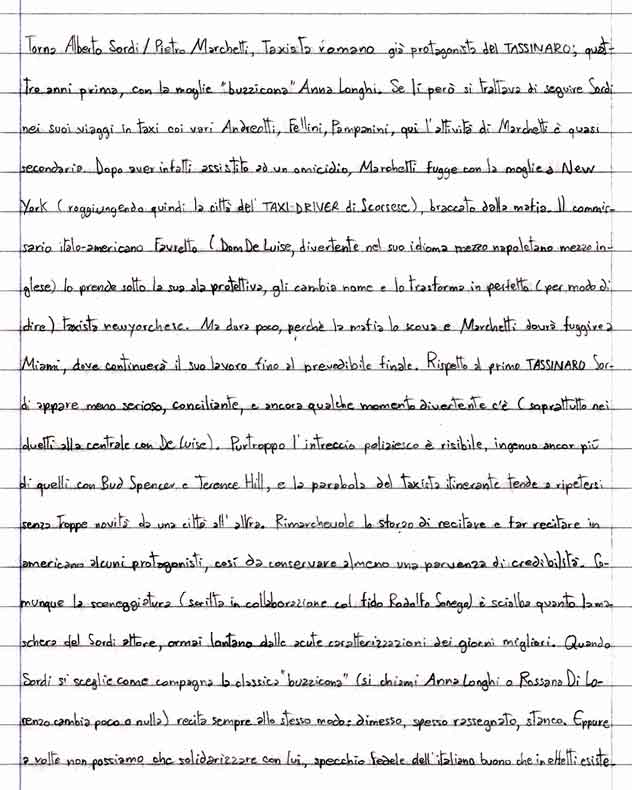 Torna Alberto Sordi/Pietro Marchetti, Taxista romano già protagonista del TASSINARO, quat-
tro anni prima, con la moglie "buzzicona" Anna Longhi. Se lì però si trattava di seguire Sordi
nei suoi viaggi in taxi coi vari Andreotti, Fellini, Pampanini, qui l'attività di Marchetti è quasi
secondario. Dopo aver infatti assistito ad un omicidio, Marchetti fugge con la moglie a New
York (raggiungendo quindi la città del TAXI-DRIVER di Scorsese), braccato dalla mafia. Il commis-
sario italo-americano Favretto (Dom De Luise, divertente nel suo idioma mezzo napoletano mezzo in-
glese) lo prende sotto la sua ala protettiva, gli cambia nome e lo trasforma in perfetto (per modo di
dire) taxista newyorchese. Ma dura poco, perchè la mafia lo scova e Marchetti dovrà fuggire a
Miami, dove continuerà il suo lavoro fino al prevedibile finale. Rispetto al primo TASSINARO Sor-
di appare meno serioso, conciliante, e ancora qualche momento divertente c'è (soprattutto nei
duetti alla centrale con De Luise). Purtroppo l'intreccio poliziesco è risibile, ingenuo ancor più
di quelli con Bud Spencer e Terence Hill, e la parabola del taxista itinerante tende a ripetersi
senza troppe novità da una città all'altra. Rimarchevole lo sforzo di recitare e far recitare in
americano alcuni protagonisti, così da conservare almeno una parvenza di credibilità. Co-
munque la sceneggiatura (scritta in collaborazione col fido Rodolfo Sonego) è scialba quanto la ma-
schera del Sordi attore, ormai lontano dalle acute caratterizzazioni dei giorni migliori. Quando
Sordi si sceglie come compagna la classica "buzzicona" (si chiami Anna Longhi o Rossana Di Lo-
renzo cambia poco o nulla) recita sempre allo stesso modo: dimesso, spesso rassegnato, stanco. Eppure
a volte non possiamo che solidarizzare con lui, specchio fedele dell'italiano buono che in effetti esiste.